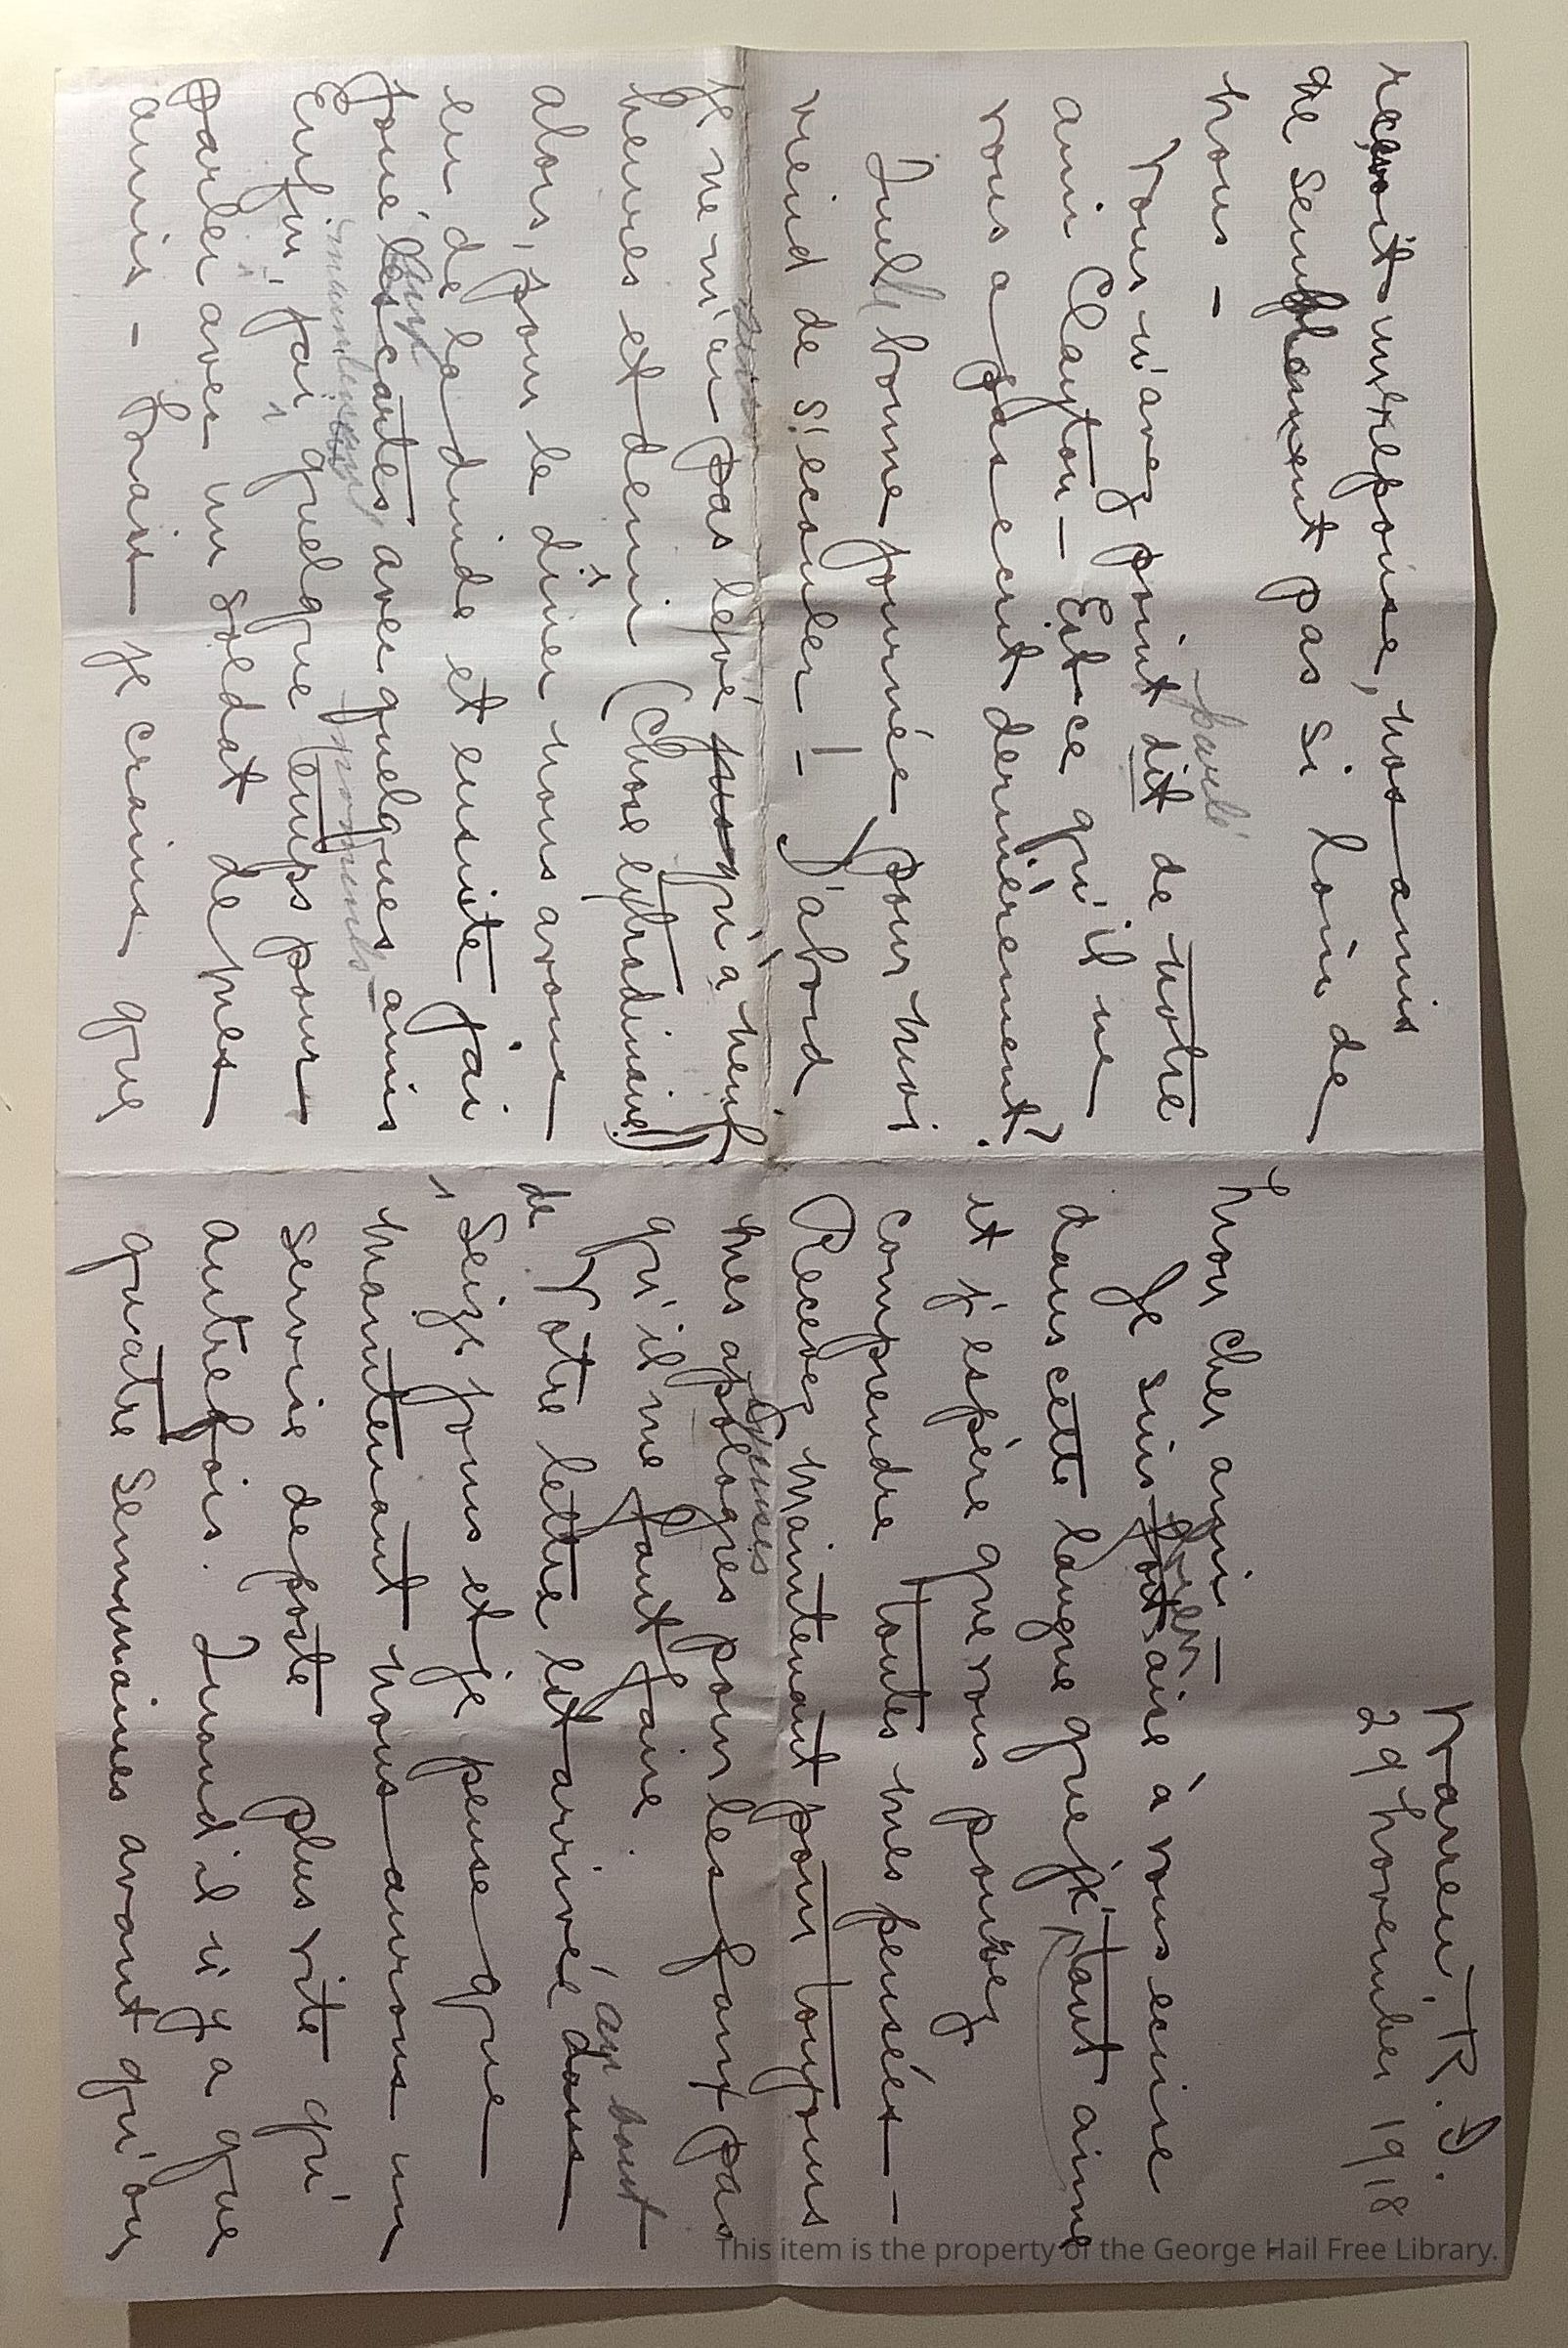 Warren, R.I.
29 November 1918
Mon cher ami –
Je suis fort aise à vous ecrire
bien
dans cette langue que j'e tant aime
et j'espère que vous pouvez
comprendre toutes mes pensées –
Recevez maintenant pour toujours
mes apologres pour les faux pas
excuses
qu'il me faut faire.
Votre lettre est arrivée dans
au bout
de
seize jours et je pense que
maintenant nous aurons un
servie de poste plus vite qu'
autrefois. Quand il n'y a que
quatre semmaines avant qu'on
reçevoit un repoise, nos amis
ne semblement pas si loin de
nous –
Vous n'avez point dit de notre
parlé
ami Clayton – Est-ce qu'il ne
vous a pas ecrit dernièrement?
Quelle bonne journée pour moi
vient de s'ecouler! – D'abord
je ne m'ai pas levé jusqu'à neuf
heures et demi (Chose extradinaire)
alors, pour le dîner nous avons
eu de la dinde et ensuite j'ai
joué les cartes avec quelques amis
aux
Enfin j'ai quelque temps pour
moments
parler avec un soldat de mes
amis – Mais je crains que